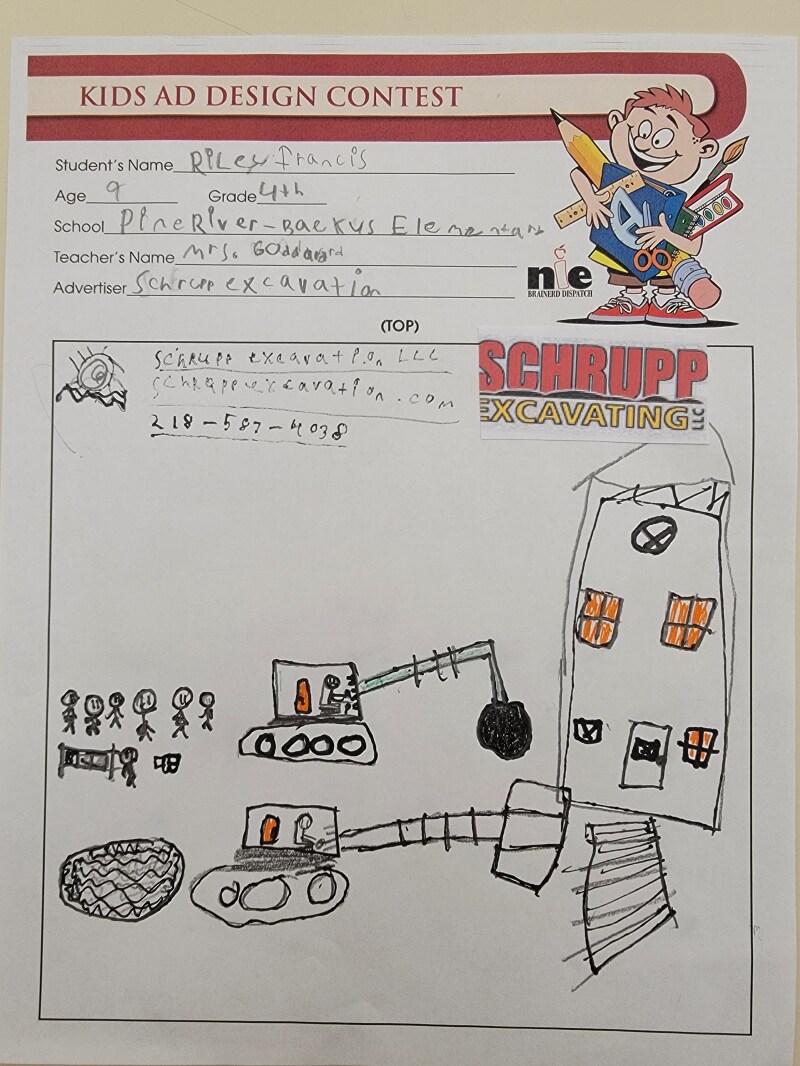 KIDS AD DESIGN CONTEST
Student's Name Riley Francis
Age 9 Grade 4th
School Pine River-Backus Elementary
Teacher's Name Mrs. Goddard
Advertiser Schrupp excavation
nie
BRAINERD DISPATCH
(TOP)
Schrupp excavation LLC
schruppexcavation.com
218-587-4038
SCHRUPP
EXCAVATING LLC